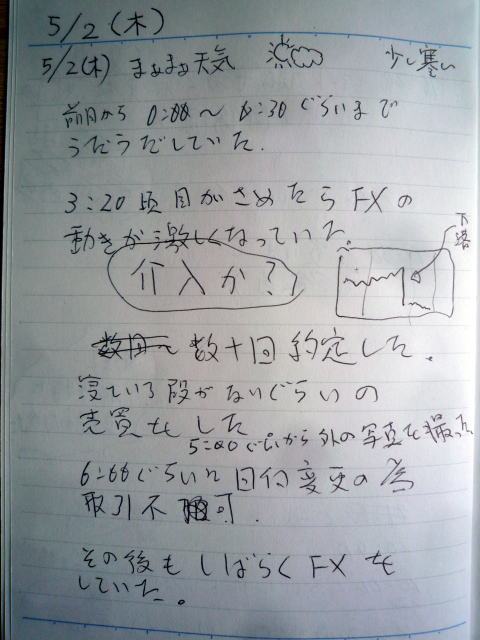 5/2(木)
5/2(木) まぁまぁ天気 少し寒い
前日から 0:00〜6:30ぐらいまで
うだうだしていた.
3:20頃目がさめたらFXの
動きが激しくなっていた。
下落
介入か?
数十回約定した.
寝ている段がないぐらいの
売買をした
5:00ぐらいから外の写真を撮った
6:00ぐらいに日付変更の為
取引不可.
その後もしばらくFXを
していた。